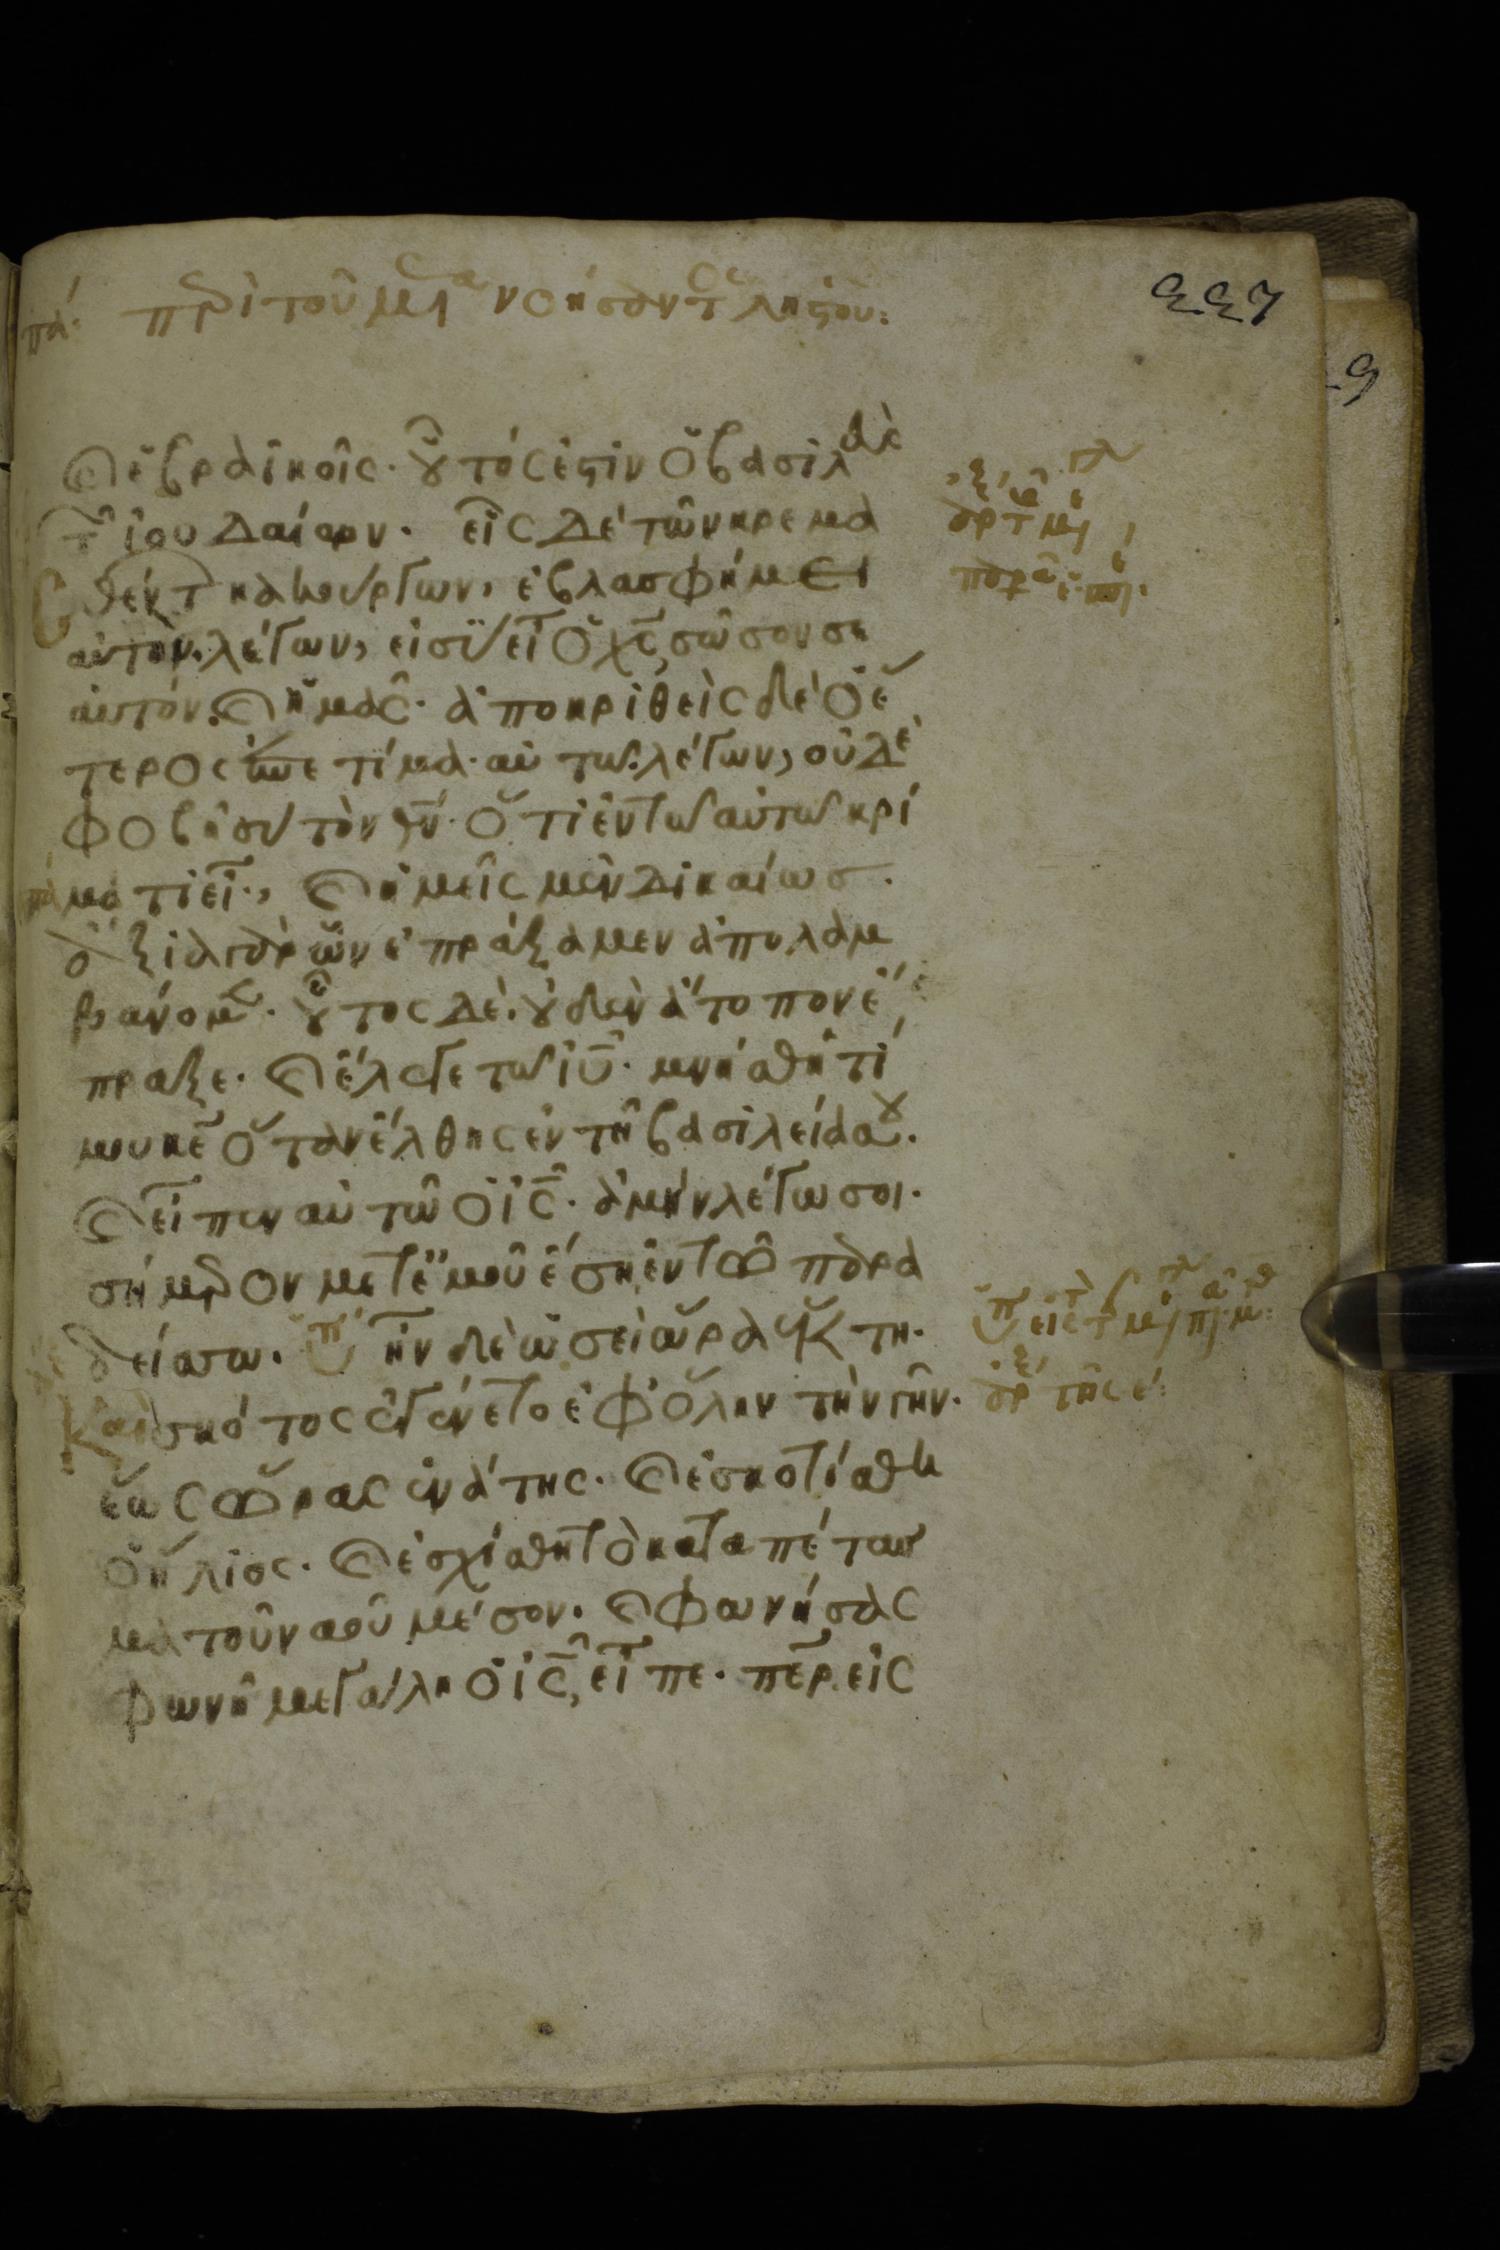 πα΄ περὶ τοῦ μετανοήσαντος λῃστοῦ:
227
(καὶ) ἑβραϊκοῖς· οὗτός ἐστιν ὁ βασιλεὺ
τῶν ἰουδαίων. εἷς δὲ τῶν κρεμα
σθέντ κακούργων, ἐβλασφήμει
αὐτὸν λέγων, εἰ σὺ εἶ ὁ χς, σῶσον σε
αυτόν (καὶ) ἡμᾶς· ἀποκριθεὶς δὲ ὁ ἕ
τερος ἐπετίμα αὐτῶ λέγων, οὐδὲ
φοβῆ σὺ τὸν θν· ὅτι ἐν τῶ αὐτῶ κρί
ματι εἶ· (καὶ) ἡμεῖς μὲν δικαίως.
ἄξια γὰρ ὧν ἐπράξαμεν ἀπολαμ
βάνομεν· οὗτος δὲ οὐδὲν ἄτοπον ἔ
πραξε. (καὶ) ἔλεγε τῶ ιυ· μνήσθητί
μου κε ὅταν ἔλθης ἐν τῆ βασιλεία σου.
(καὶ) εἶπεν αὐτῶ ὁ ις· ἀμὴν λέγω σοι.
σήμερον μετ ἐμοῦ ἔση ἐν τῶ παρα
δείσω. ἦν δὲ ὡσεὶ ὥρα ἕκτη.
Καὶ σκότος ἐγένετο ἐφ ὅλην τὴν γῆν.
ἕως ὥρας ἐνάτης. (καὶ) ἐσκοτίσθη
ὁ ἥλιος. (καὶ) ἐσχίσθη τὸ καταπέτασ
μα τοῦ ναοῦ μέσον. (καὶ) φωνήσας
φωνῆ μεγάλη ὁ ις, εἶπε. περ εἰς